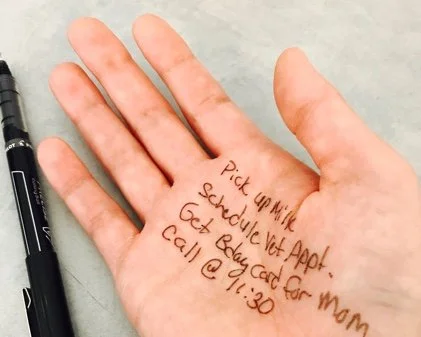 Pick up Milk
Schedule Vet Appt.
Get Bday card for Mom
Call @ 11:30